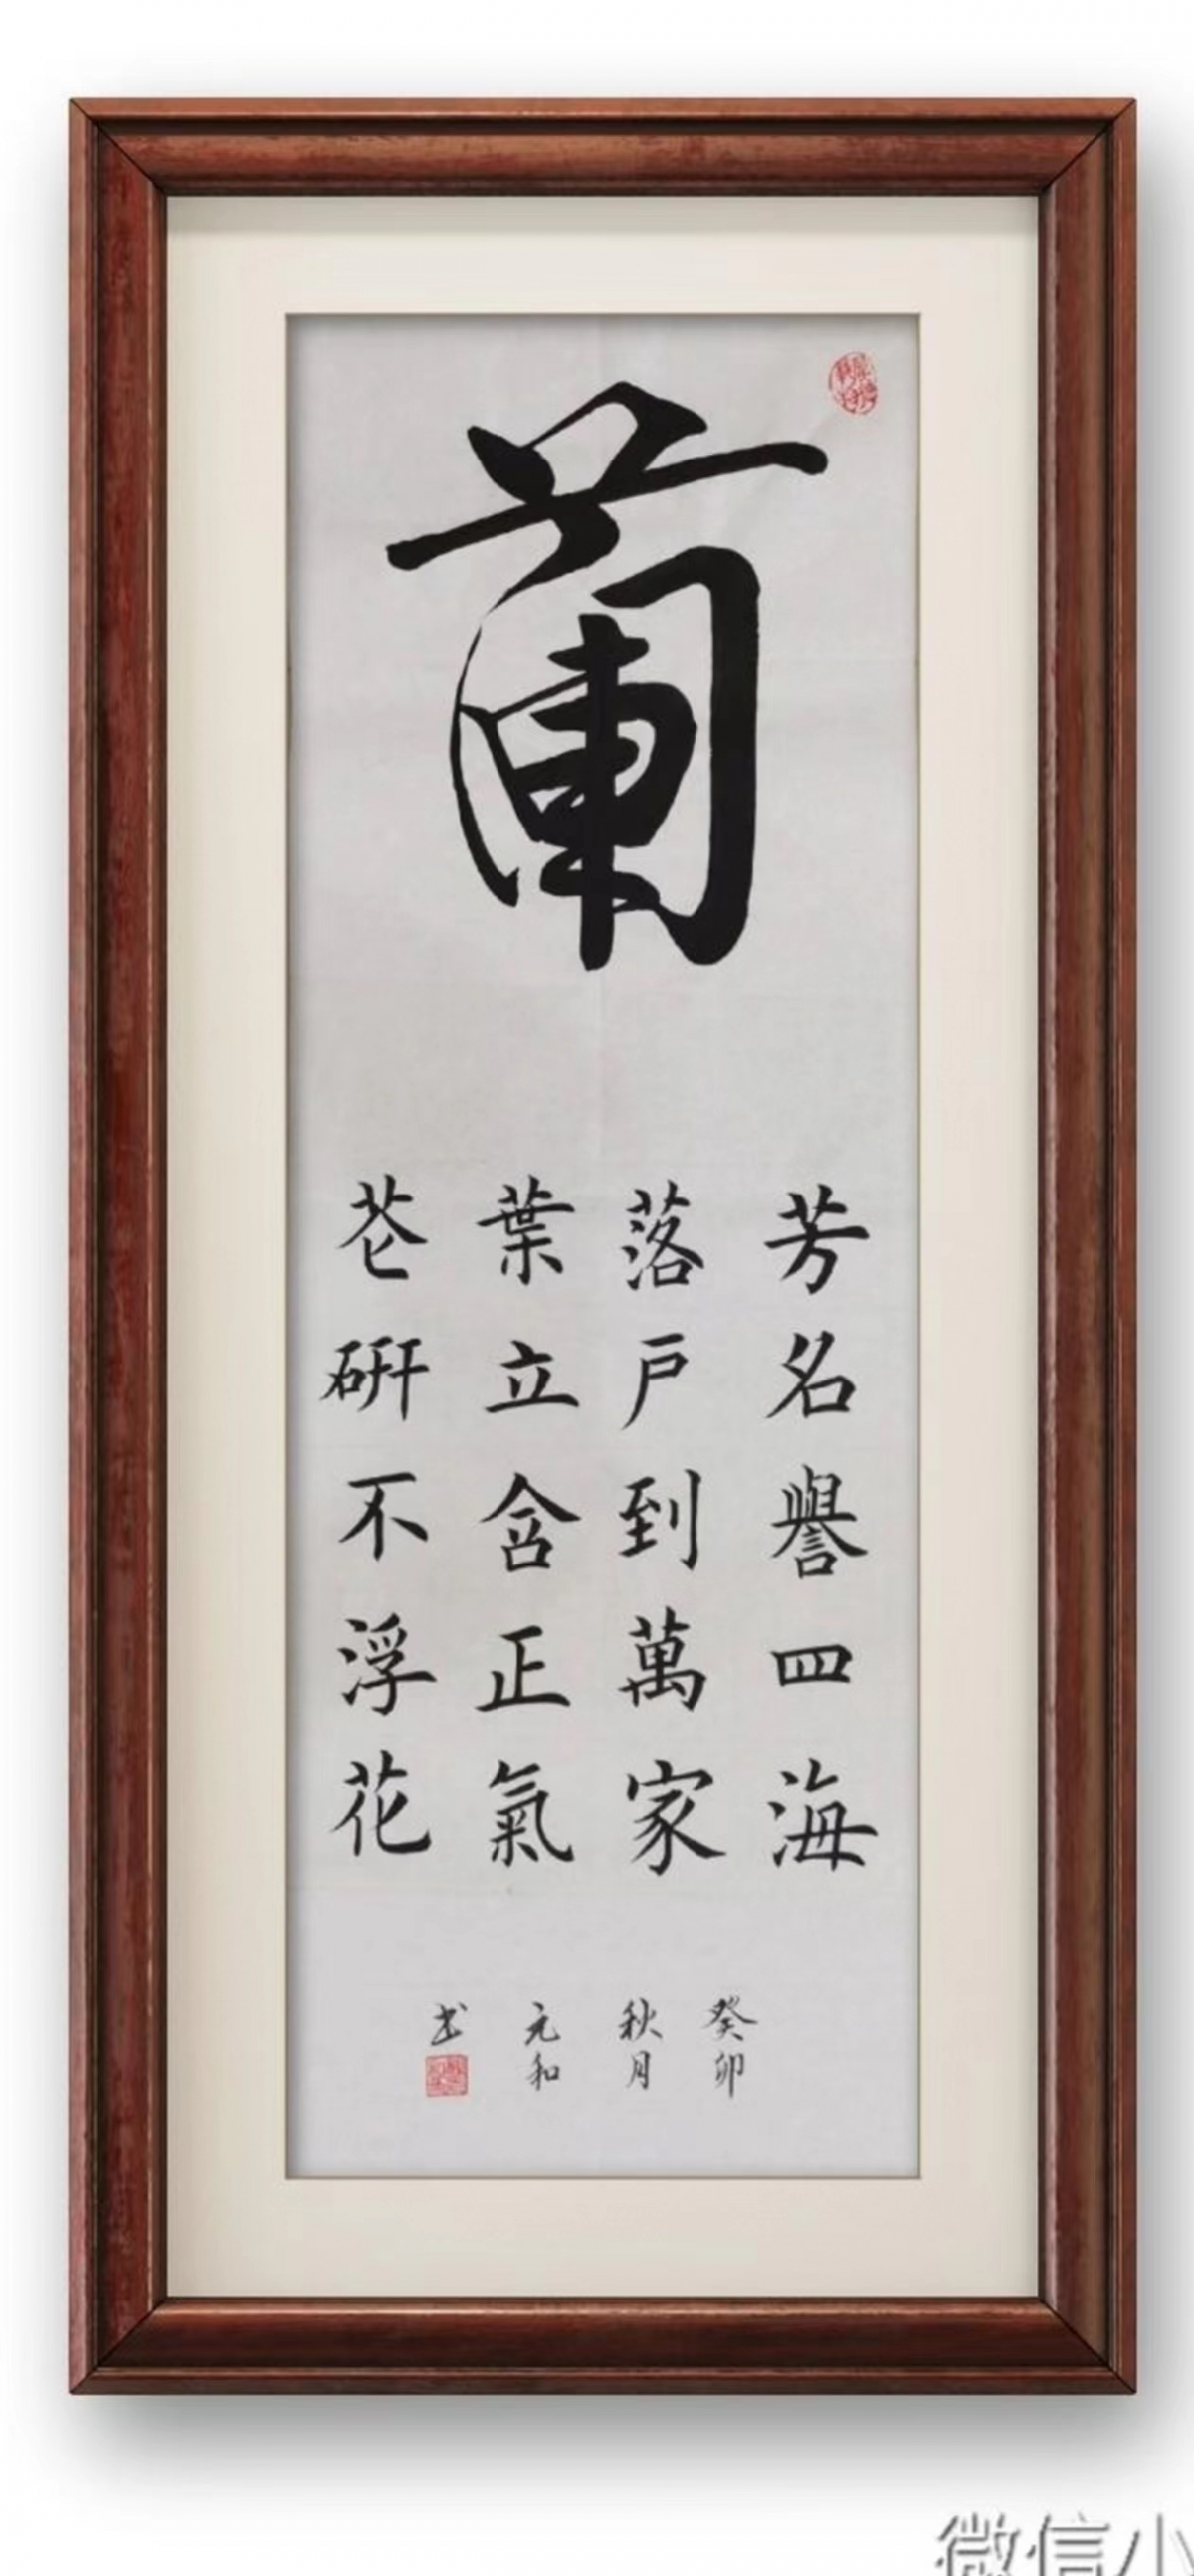 蘭
芳名譽四海
落戶到萬家
葉立含正氣
芲研不浮花
癸卯
秋月
元和
书
微信小